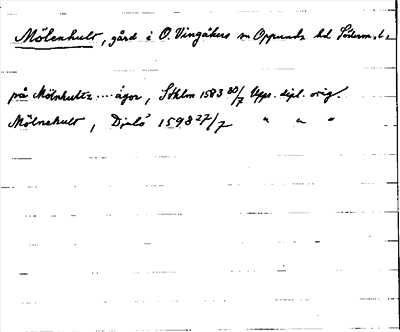 Mölenhult, gård i Ö. Vingåkers sn Oppunda hd Söderm.l.
på Mölnhultz .... ägor, Sthlm 1583 30/7 Upps. dipl. orig.
Mölnehult, Djulö 1598 27/7 " " "